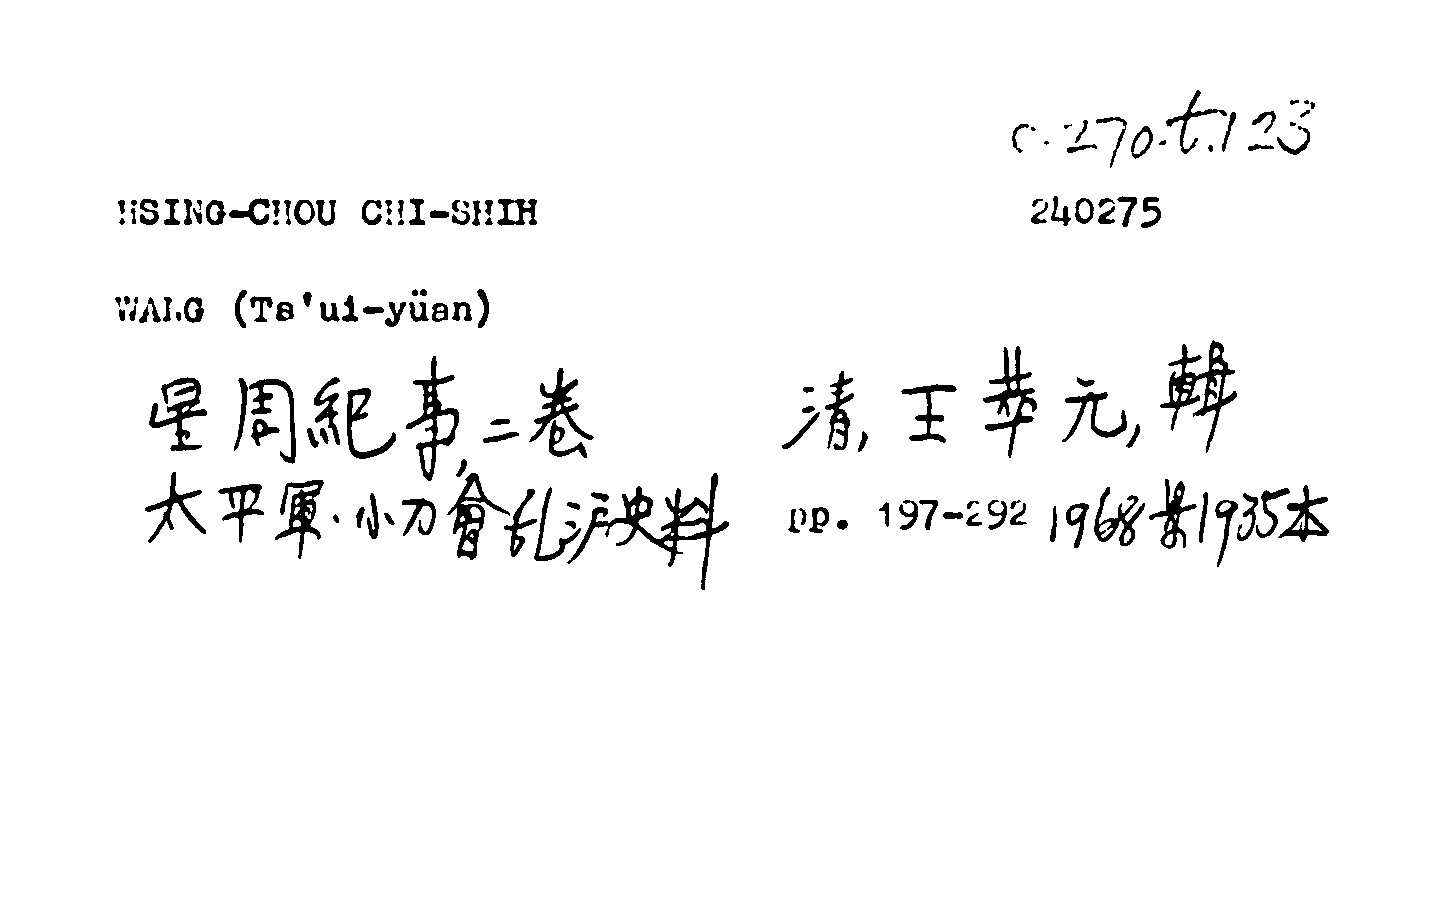 c.270.t.123
HSING-CHOU CHI-SHIH 240275
WANG (Ts'ui-yüan)
星周紀事,二卷 清,王萃元,輯
太平軍.小刀會乱沪史料 pp. 197-292 1968景1935本